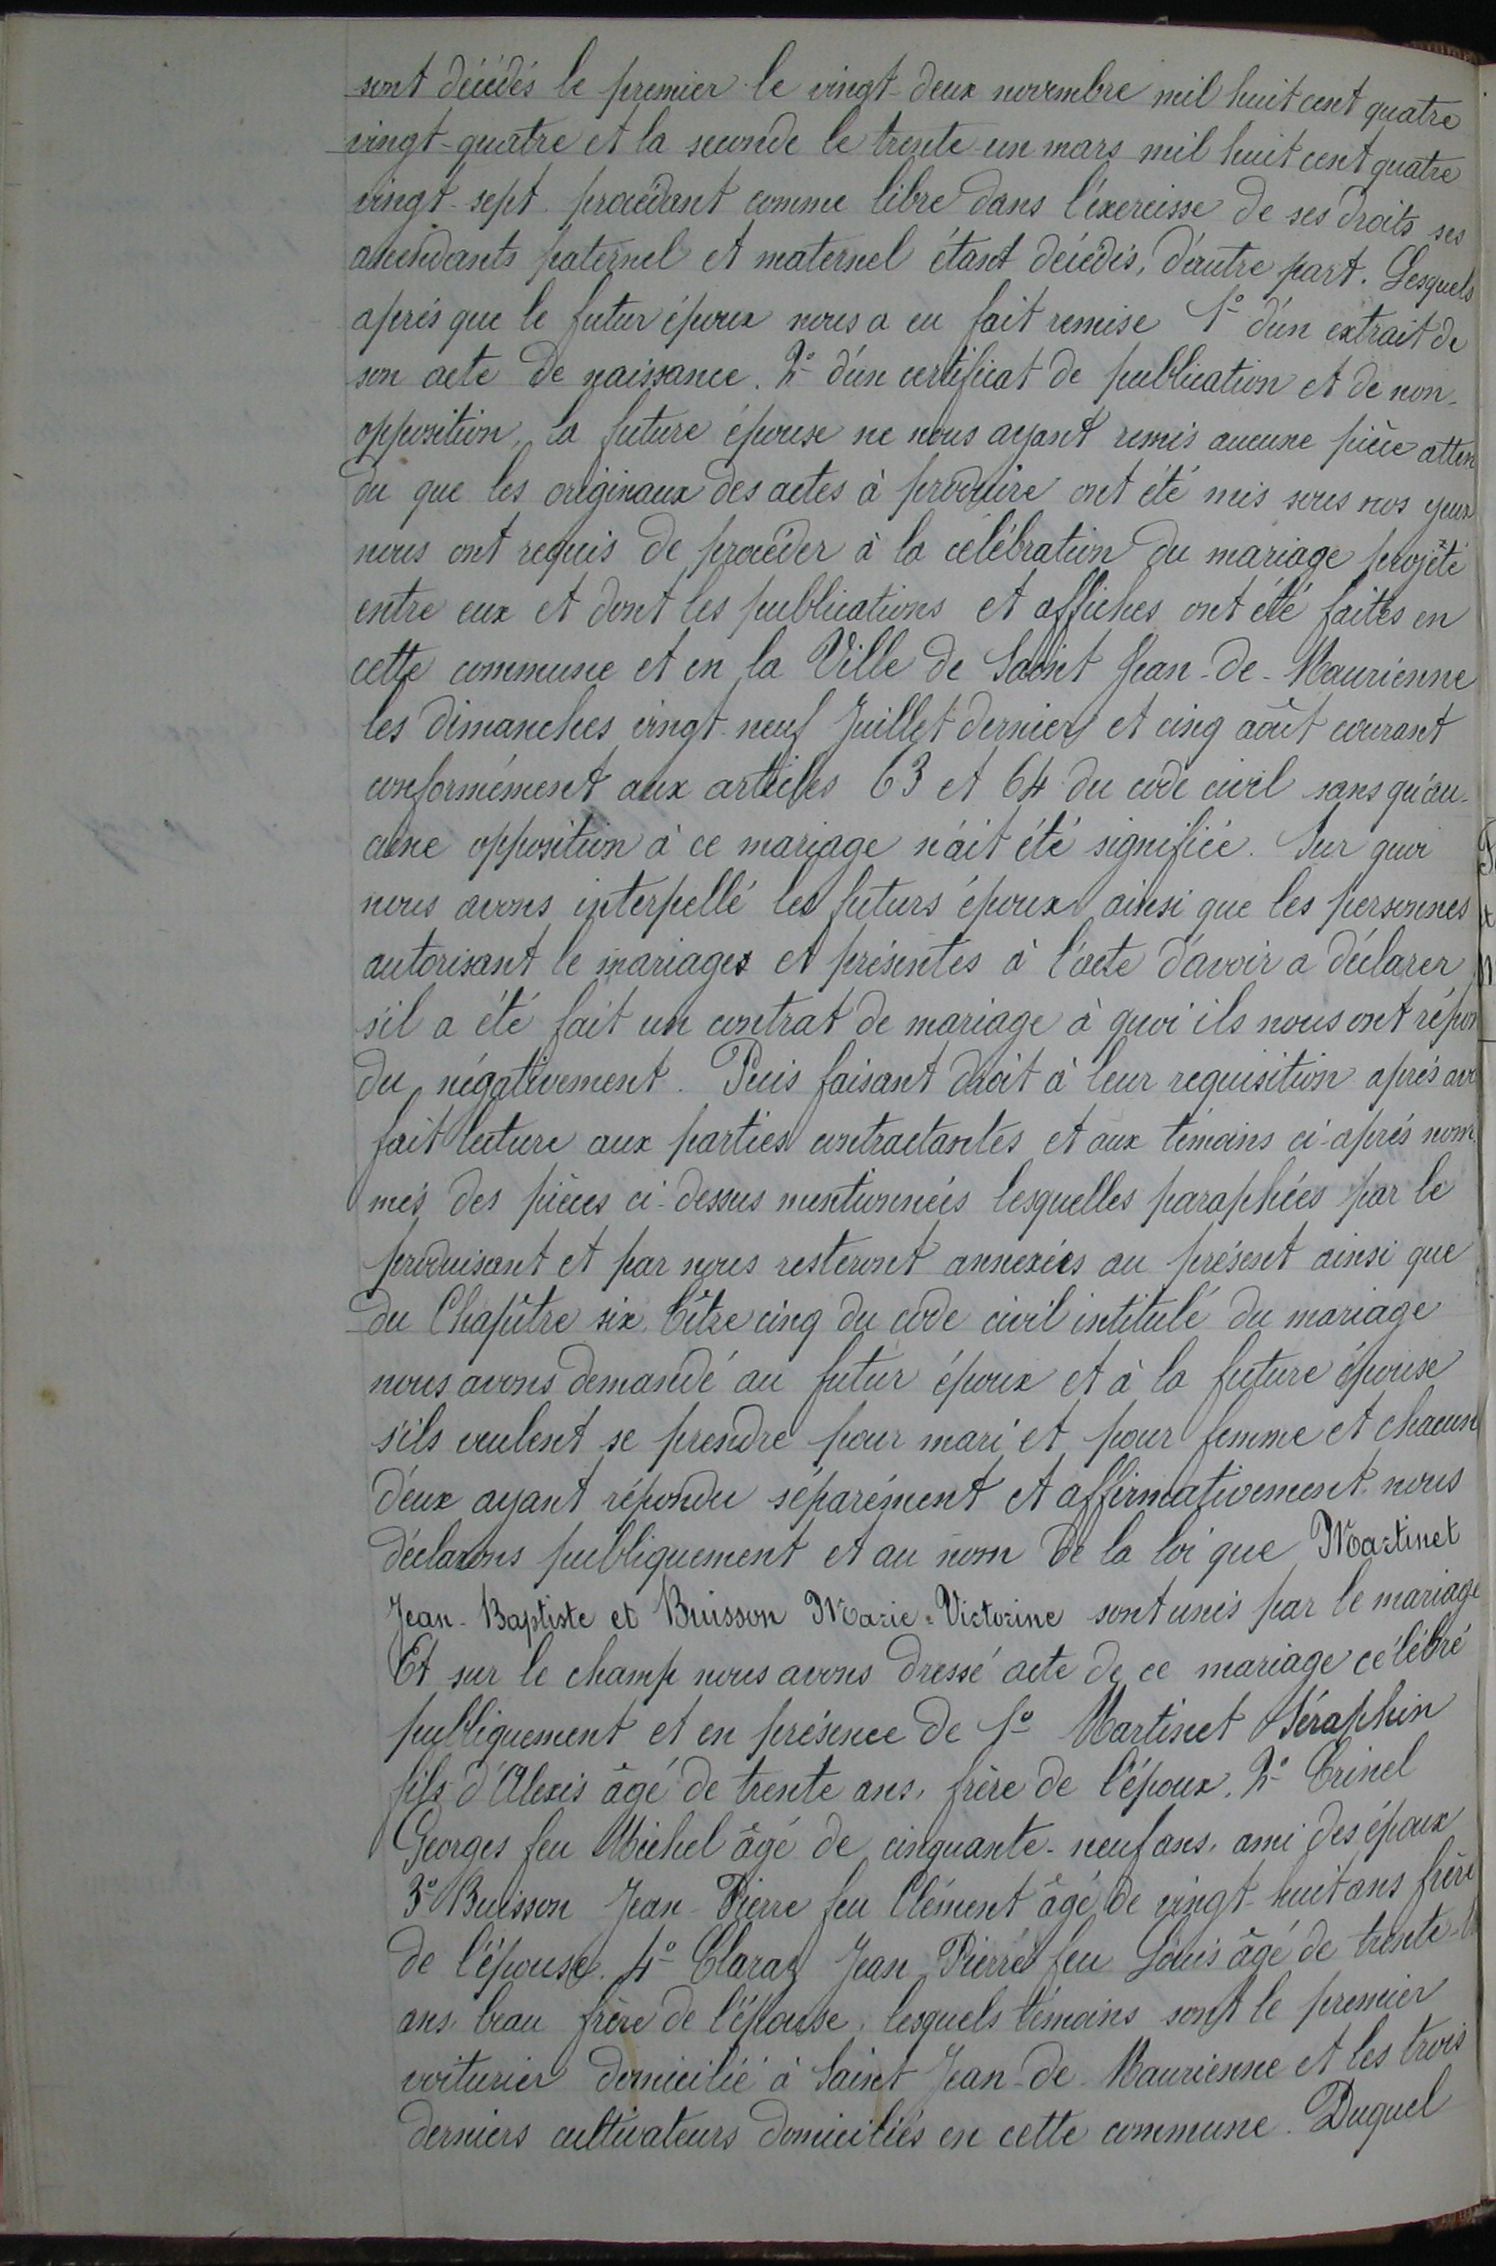 sont décédés le premier le vingt-deux novembre mil huit cent quatre
vingt-quatre et la seconde le trente-un mars mil huit cent quatre
vingt-sept procédant comme libre dans l'éxercisse de ses droits ses
ascendants paternel et maternel étant décédés, d'autre part. Lesquels
après que le futur époux nous a eu fait remise 1° d'un extrait de
son acte de naissance. 2° d'un certificat de publication et de non-
opposition, la future épouse ne nous ayant remis aucune pièce atten
du que les originaux des actes à produire ont été mis sous nos yeux
nous ont requis de procéder à la célébration du mariage projété
entre eux et dont les publications et affiches ont été faites en
cette commune et en la Ville de Saint Jean-de-Maurienne
les dimanches vingt-neuf Juillet dernier et cinq août courant
conformément aux articles 63 et 64 du code civil sans qu'au-
cune opposition à ce mariage n'ait été signifiée. Sur quoi
nous avons interpellé les futurs époux ainsi que les personnes
autorisant le mariages et présentes à l'acte d'avoir a déclarer
s'il a été fait un contrat de mariage à quoi ils nous ont répon
du négativement. Puis faisant droit à leur requisition après avo
fait lecture aux parties contractantes et aux témoins ci-après nom
més des pièces ci-dessus mentionnées lesquelles paraphées par le
produisant et par nous resteront annexées au présent ainsi que
du Chapître six, tître cinq du code civil intitulé du mariage
nous avons demandé au futur époux et à la future épouse
s'ils veulent se prendre pour mari et pour femme et chacun
d'eux ayant répondu séparément et affirmativement nous
déclarons publiquement et au nom de la loi que Martinet
Jean-Baptiste et Buisson Marie-Victorine sont unis par le mariage
Et sur le champ nous avons dressé acte de ce mariage célébré
publiquement et en présence de 1° Martinet Séraphin
fils d'Alexis âgé de trente ans, frère de l'époux. 2° Trinel
Georges feu Michel âgé de cinquante-neuf ans, ami des époux
3° Buisson Jean-Pierre feu Clément âgé de vingt-huit ans frère
de l'épouse. 4° Claraz Jean Pierre feu Louis âgé de trente-
ans, beau frère de l'épouse, lesquels témoins sont le premier
voiturier domicilié à Saint Jean-de-Maurienne et les trois
derniers cultivateurs domiciliés en cette commune. Duquel